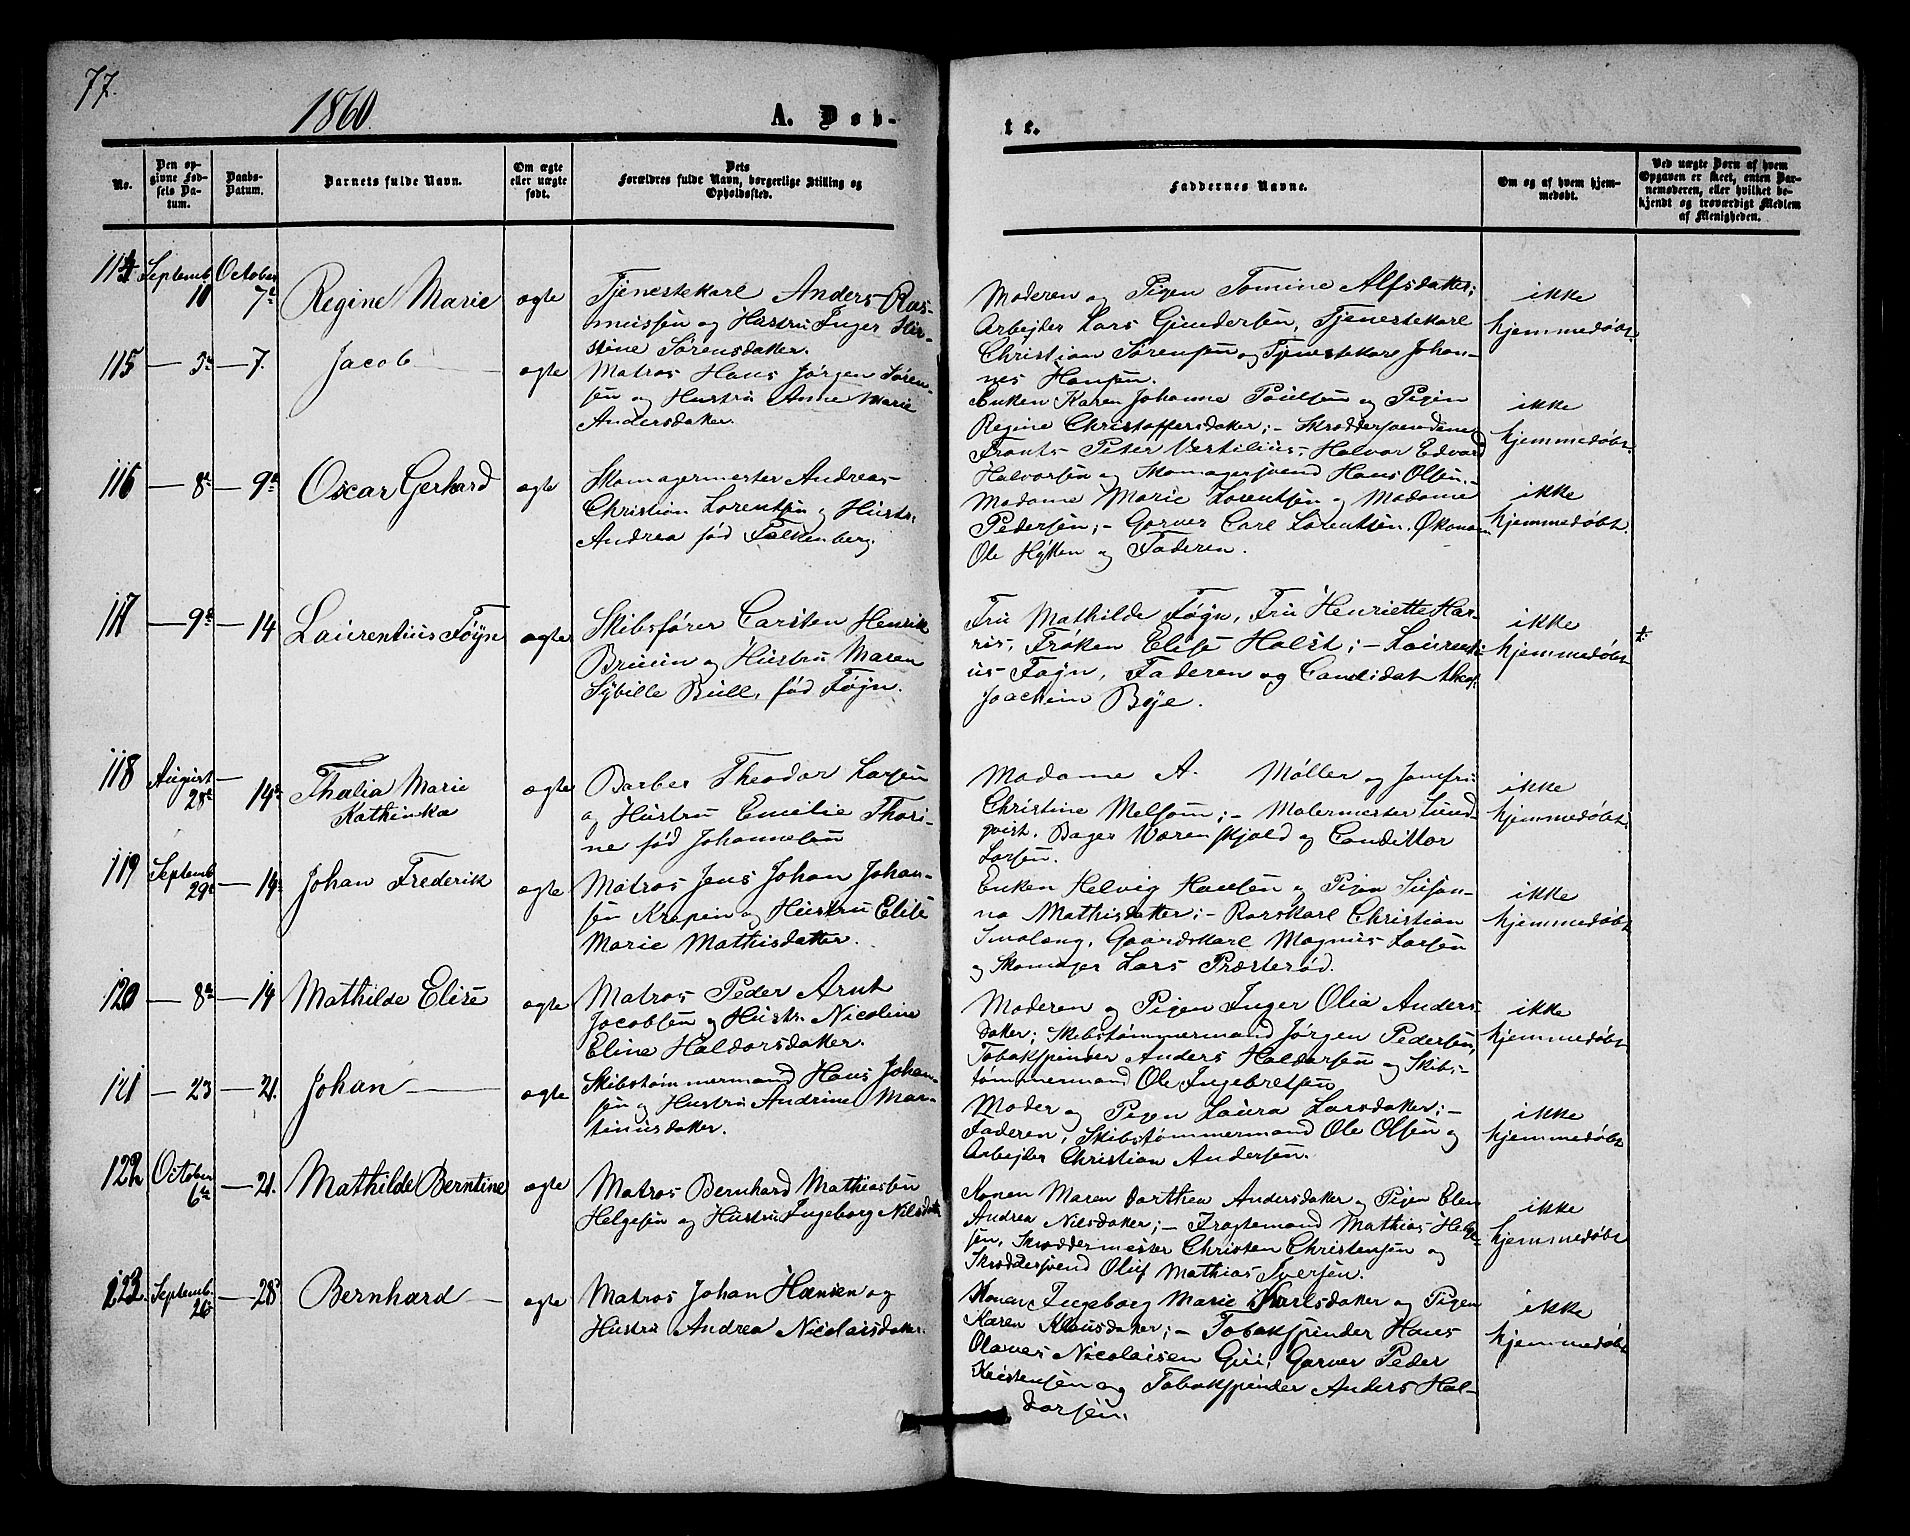 77.
1860.
A. Døb-
te.
No.
Den op-
givne Fød-
sels Da-
tum.
Daabs-
Datum.
Barnets fulde Navn.
Om ægte
eller uægte
født.
Dets
Forældres fulde Navn, borgerlige Stilling og
Opholdssted.
Faddernes Navne.
Om og af hvem hjem-
medøbt.
Ved uægte Børn af hvem
Opgaven er skeet, enten Bar-
nemoderen, eller hvilket be-
kjendt og troværdigt Medlem
af Menigheden.
114 Septemb. October
11 7de Regine Marie ægte
Tjenestekarl Anders Ras-
mussen og Hustru Inger Kir-
stine Sørensdatter.
Moderen og Pigen Tomine Alfsdatter;
Arbejder Lars Gundersen, Tjenestekarl
Christian Sørensen og Tjenestekarl Johan-
nes Hansen.
ikke
hjemmedøbt
115 — 5te — 7. Jacob — ægte
Matros Hans Jørgen Søren-
sen og Hustru Anne Marie
Andersdatter.
Enken Karen Johanne Poulsen og Pigen
Regine Christoffersdatter; — Skræddersvendene
Frants Peter Vertilius, Halvor Edvard
Halvorsen og Skomagersvend Hans Olsen.
ikke
hjemmedøbt
116 — 8de — 9de Oscar Gerhard ægte
Skomagermester Andreas
Christian Lorentsen og Hustru
Andrea fød Falkenberg.
Madame Marie Lorentsen og Madame
Pedersen; — Garver Carl Lorentsen, Økonom
Ole Hytten og Faderen.
ikke
hjemmedøbt.
117 — 9de — 14 Laurentius Føyn ægte
Skibsfører Carsten Henrik
Bruun og Hustru Maren
Sybille Bull, fød Føyn.
Fru Mathilde Føyn, Fru Henriette Har-
ris, Frøken Elise Holst; — Laurenti-
us Føyn, Faderen og Candidat
Joachim Bøje.
ikke
hjemmedøbt
118 August —
28de 14de Thalia Marie
Kathinka
ægte
Barber Theodor Larsen
og Hustru Emilie Thori-
ne fød Johannesen
Madame A. Møller og Jomfru
Christine Melsom; — Malermester Lund-
qvist, Bager Værenskjold og Conditor
Larsen.
ikke
hjemmedøbt
119 Septemb.
29de — 14de Johan Frederik ægte
Matros Jens Johan Johan-
sen Krapein og Hustru Elise
Marie Mathisdatter.
Enken Helvig Hansen og Pigen Susan-
na Mathisdatter; — Rorskarl Christian
Smalang, Gaardskarl Magnus Larsen
og Skomager Lars Præsterød.
ikke
hjemmedøbt
120 — 8de — 14 Mathilde Elise ægte
Matros Peder Arnt
Jacobsen og Hustru Nicoline
Eline Haldorsdatter.
Moderen og Pigen Inger Olia Anders-
datter; Skibstømmermand Jørgen Pedersen,
Tobakspinder Anders Haldorsen og Skibs-
tømmermand Ole Ingebretsen
ikke
hjemmedøbt
121 — 23 — 21. Johan — ægte
Skibstømmermand Hans Johan-
sen og Hustru Andrine Mar-
tinusdatter.
Moder og Pigen Laura Larsdatter; —
Faderen, Skibstømmermand Ole Olsen og
Arbejder Christian Andersen.
ikke
hjemmedøbt
122 October
6te — 21. Mathilde Berntine ægte
Matros Bernhard Mathiassen
Helgesen og Hustru Ingeborg Nilsdatter
Konen Maren Dorthea Andersdatter og Pigen Elen
Andrea Nilsdatter; — Fragtemand Mathias Helge-
sen, Skræddermester Christen Christensen og
Skræddersvend Oluf Mathias Iversen.
ikke
hjemmedøbt
123. Septemb.
26 — 28de Bernhard — ægte
Matros Johan Hansen og
Hustru Andrea Nicolaisdatter.
Konen Ingeborg Marie Karlsdatter og Pigen
Karen Klausdatter; — Tobakspinder Hans
Olaves Nicolaisen Gui, Garver Peder
Kristensen og Tobakspinder Anders Hal-
dorsen.
ikke
hjemmedøbt